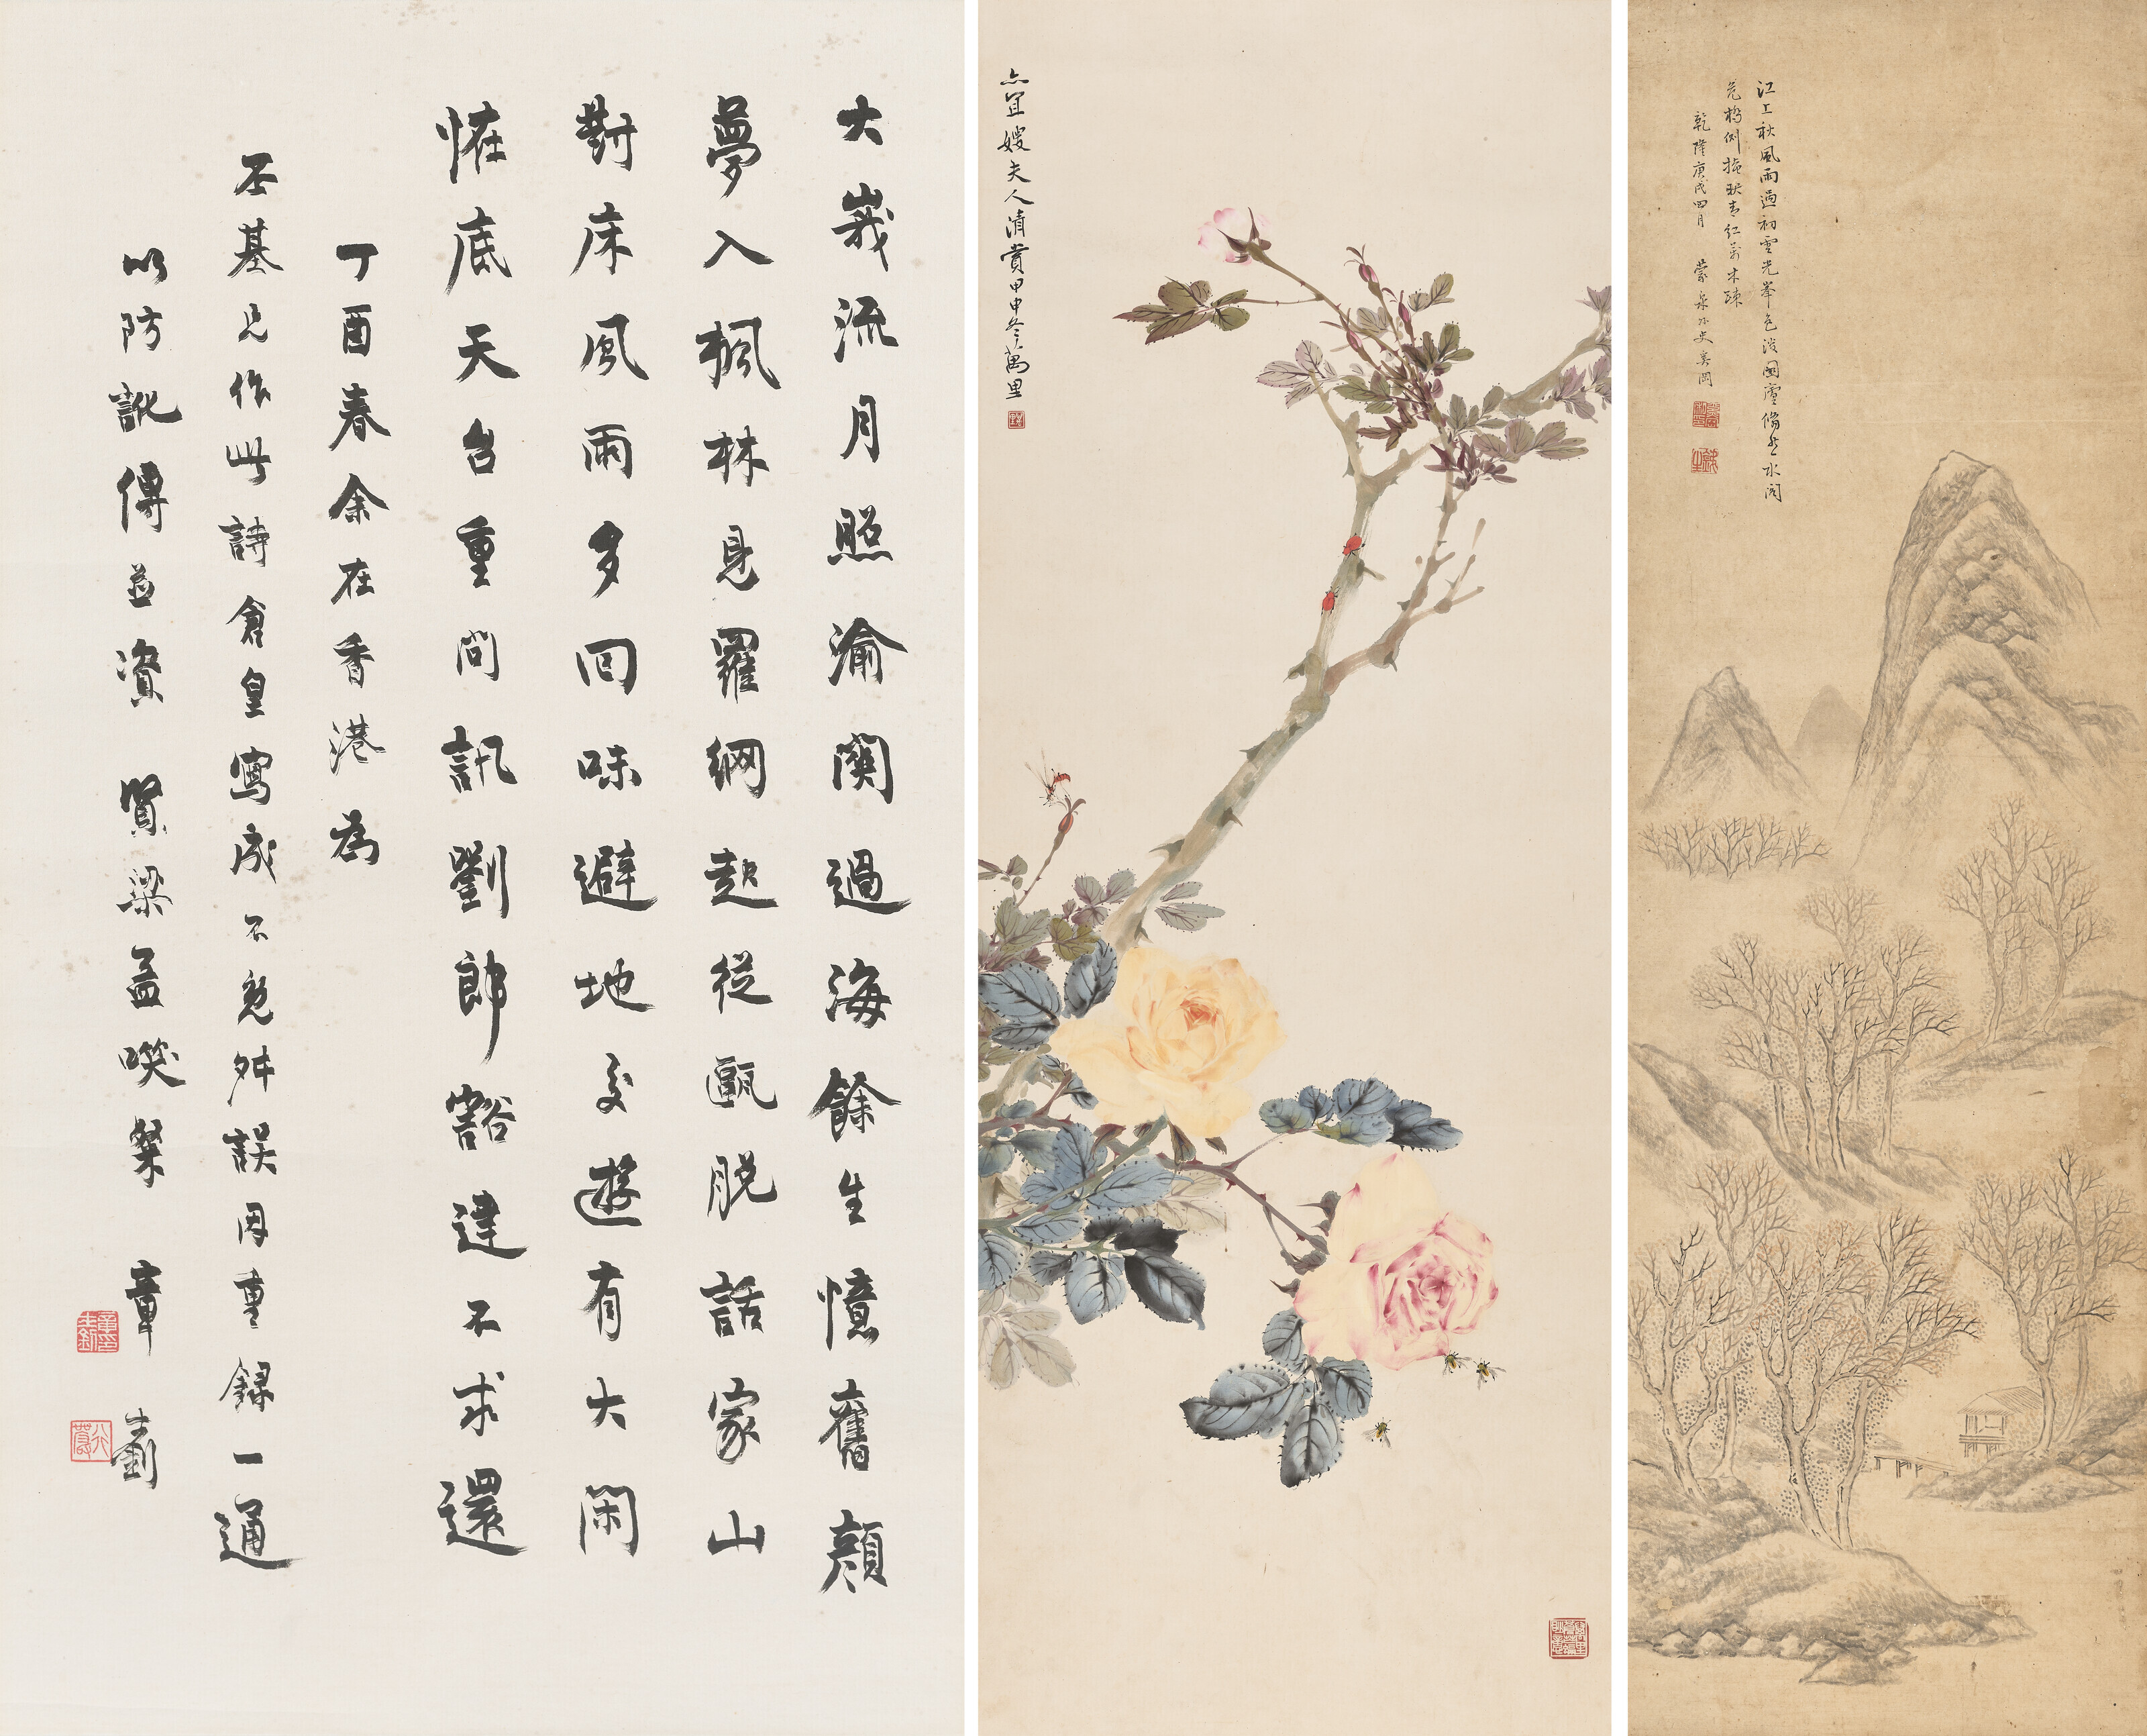 大峩流月照渝關過海餘生憶舊顔
夢入楓林見羅網起從甌脱話家山
對床風雨多回味避地交遊有大閑
怪底天台重問訊劉郎豁達不求還
丁酉春余在香港為
丕基兄作此詩倉皇寫成不免舛誤因重録一通
以防訛傳並資 賢梁孟咲粲 章士釗
亦宜嫂夫人清賞甲申冬萬里
江上秋風雨過初雲光峯色淡圍廬翛然水閣
危橋側掩映青紅萬木疎
乾隆庚戌四月 蒙泉外史奚岡